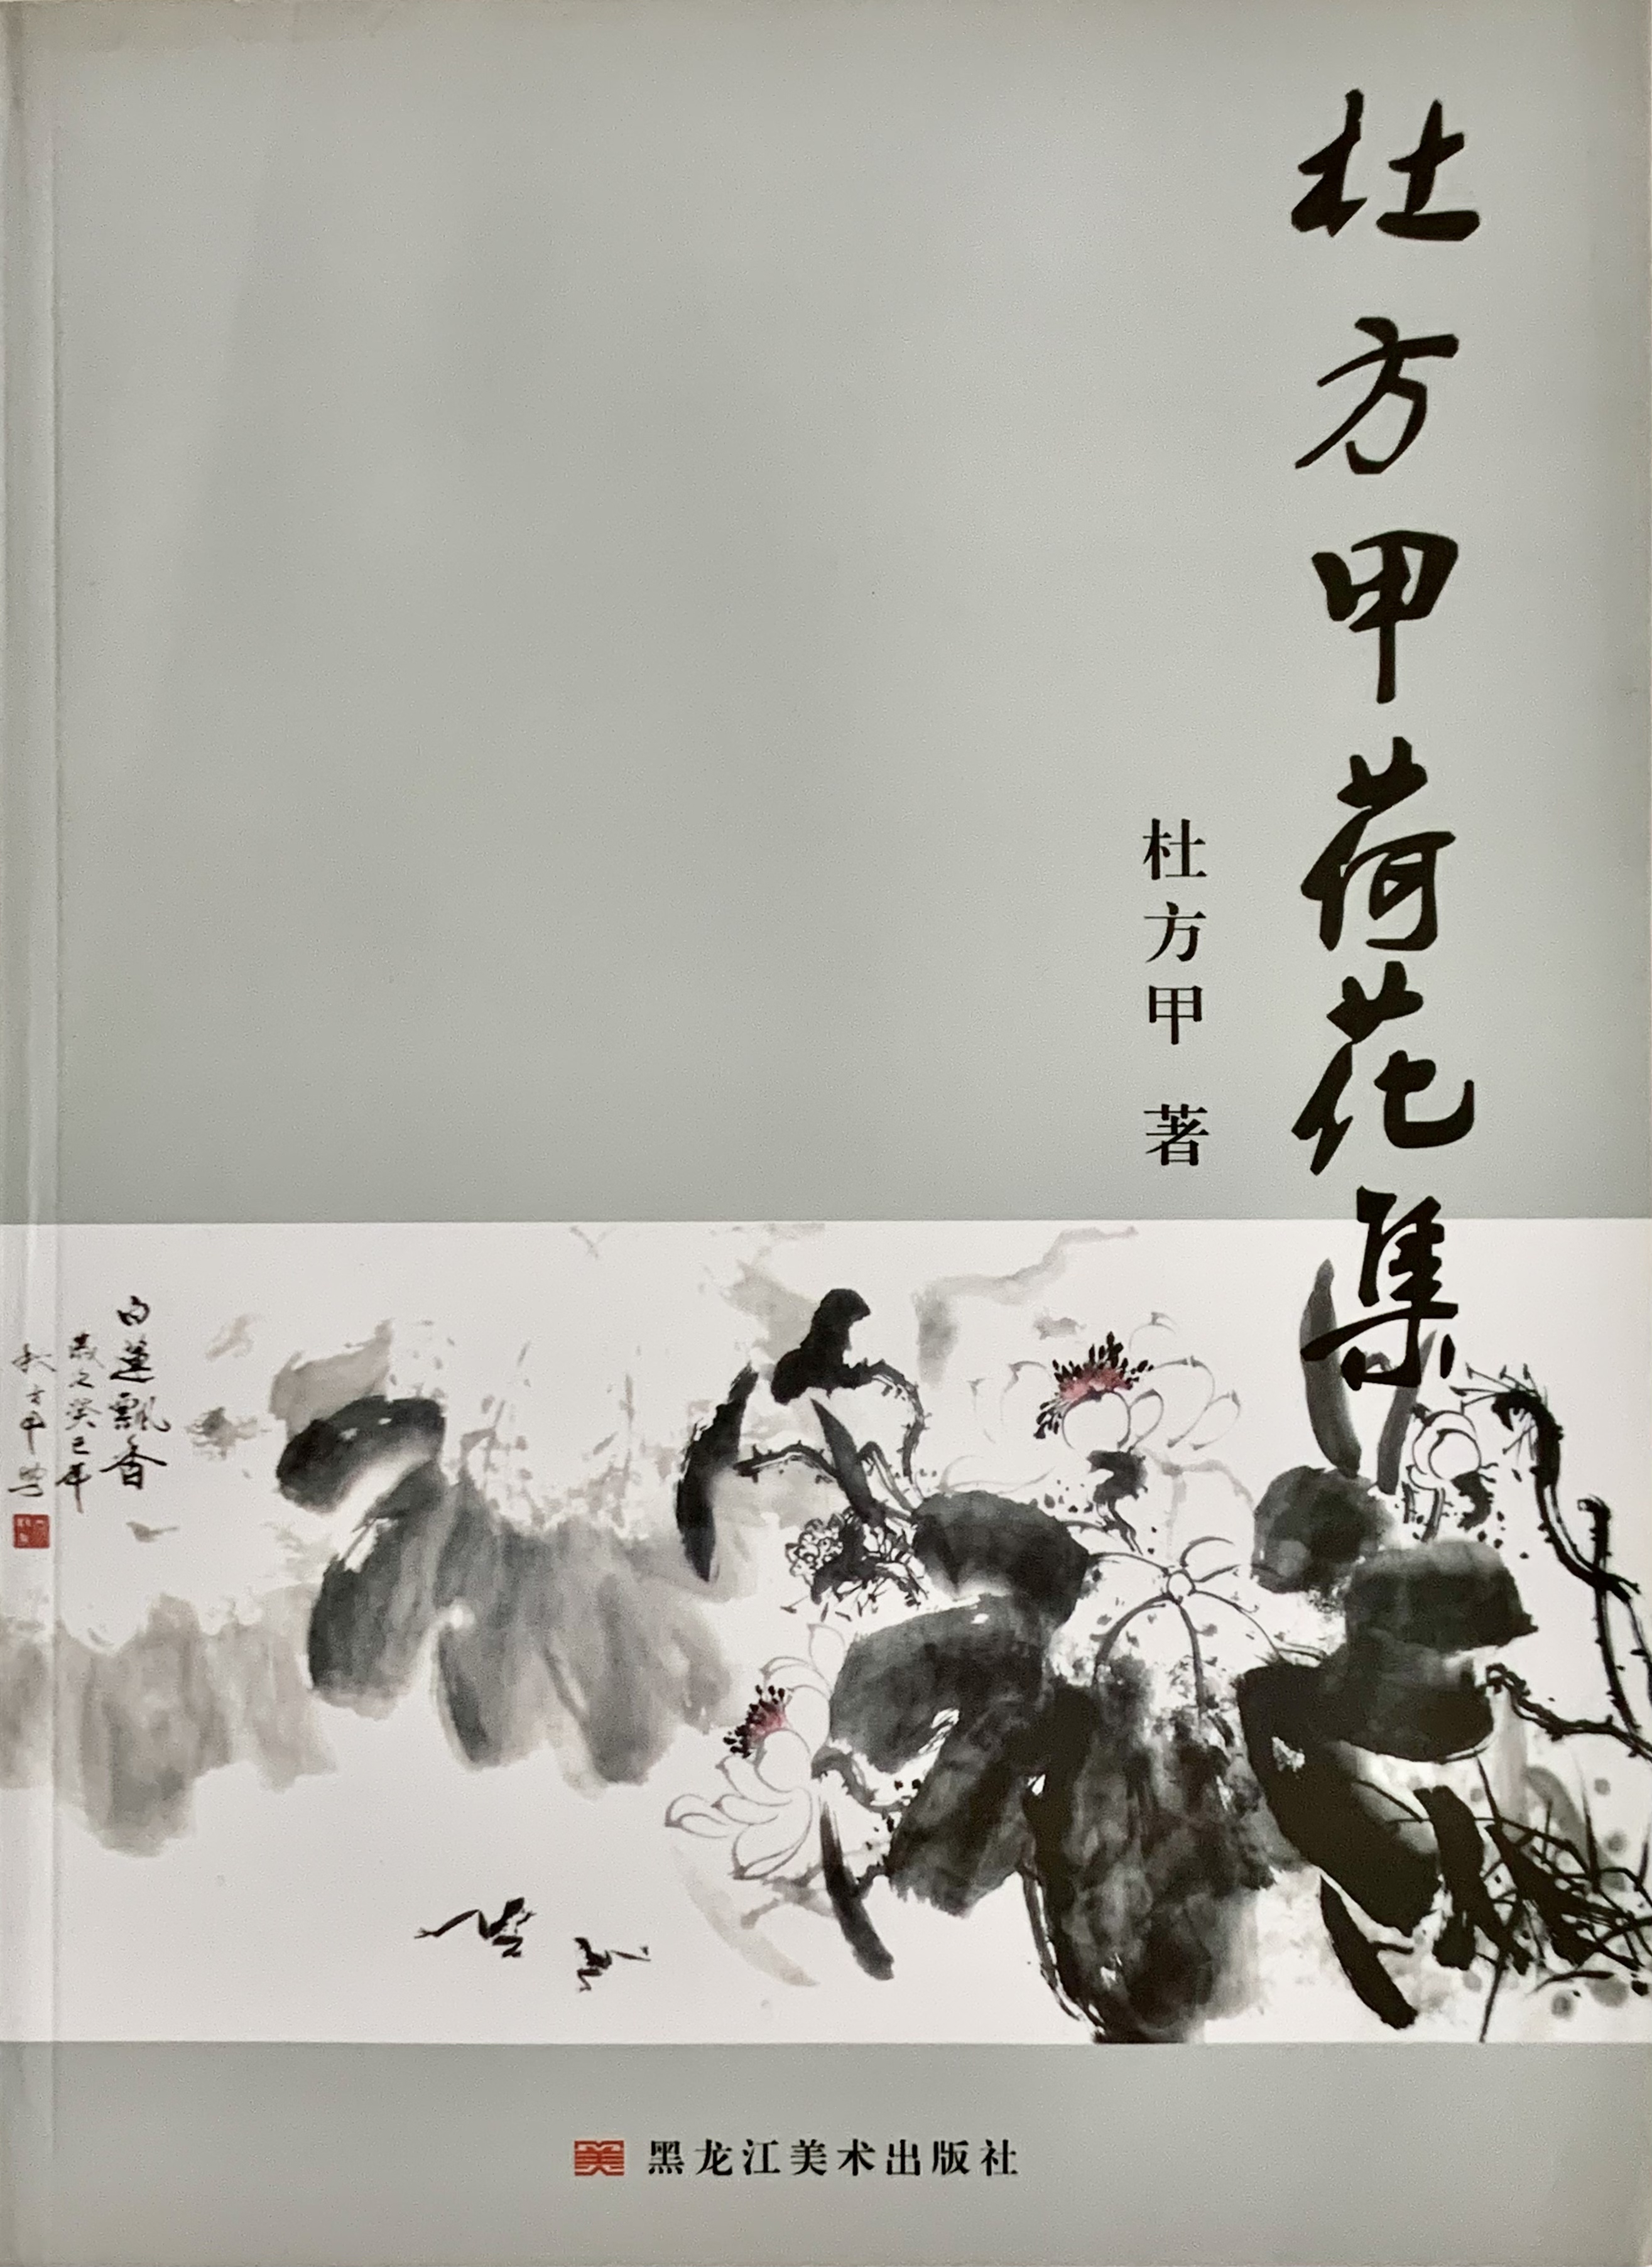 杜方甲荷花集
杜方甲 著
白蓮飄香
歲之癸巳年
秋方甲
美 黑龙江美术出版社